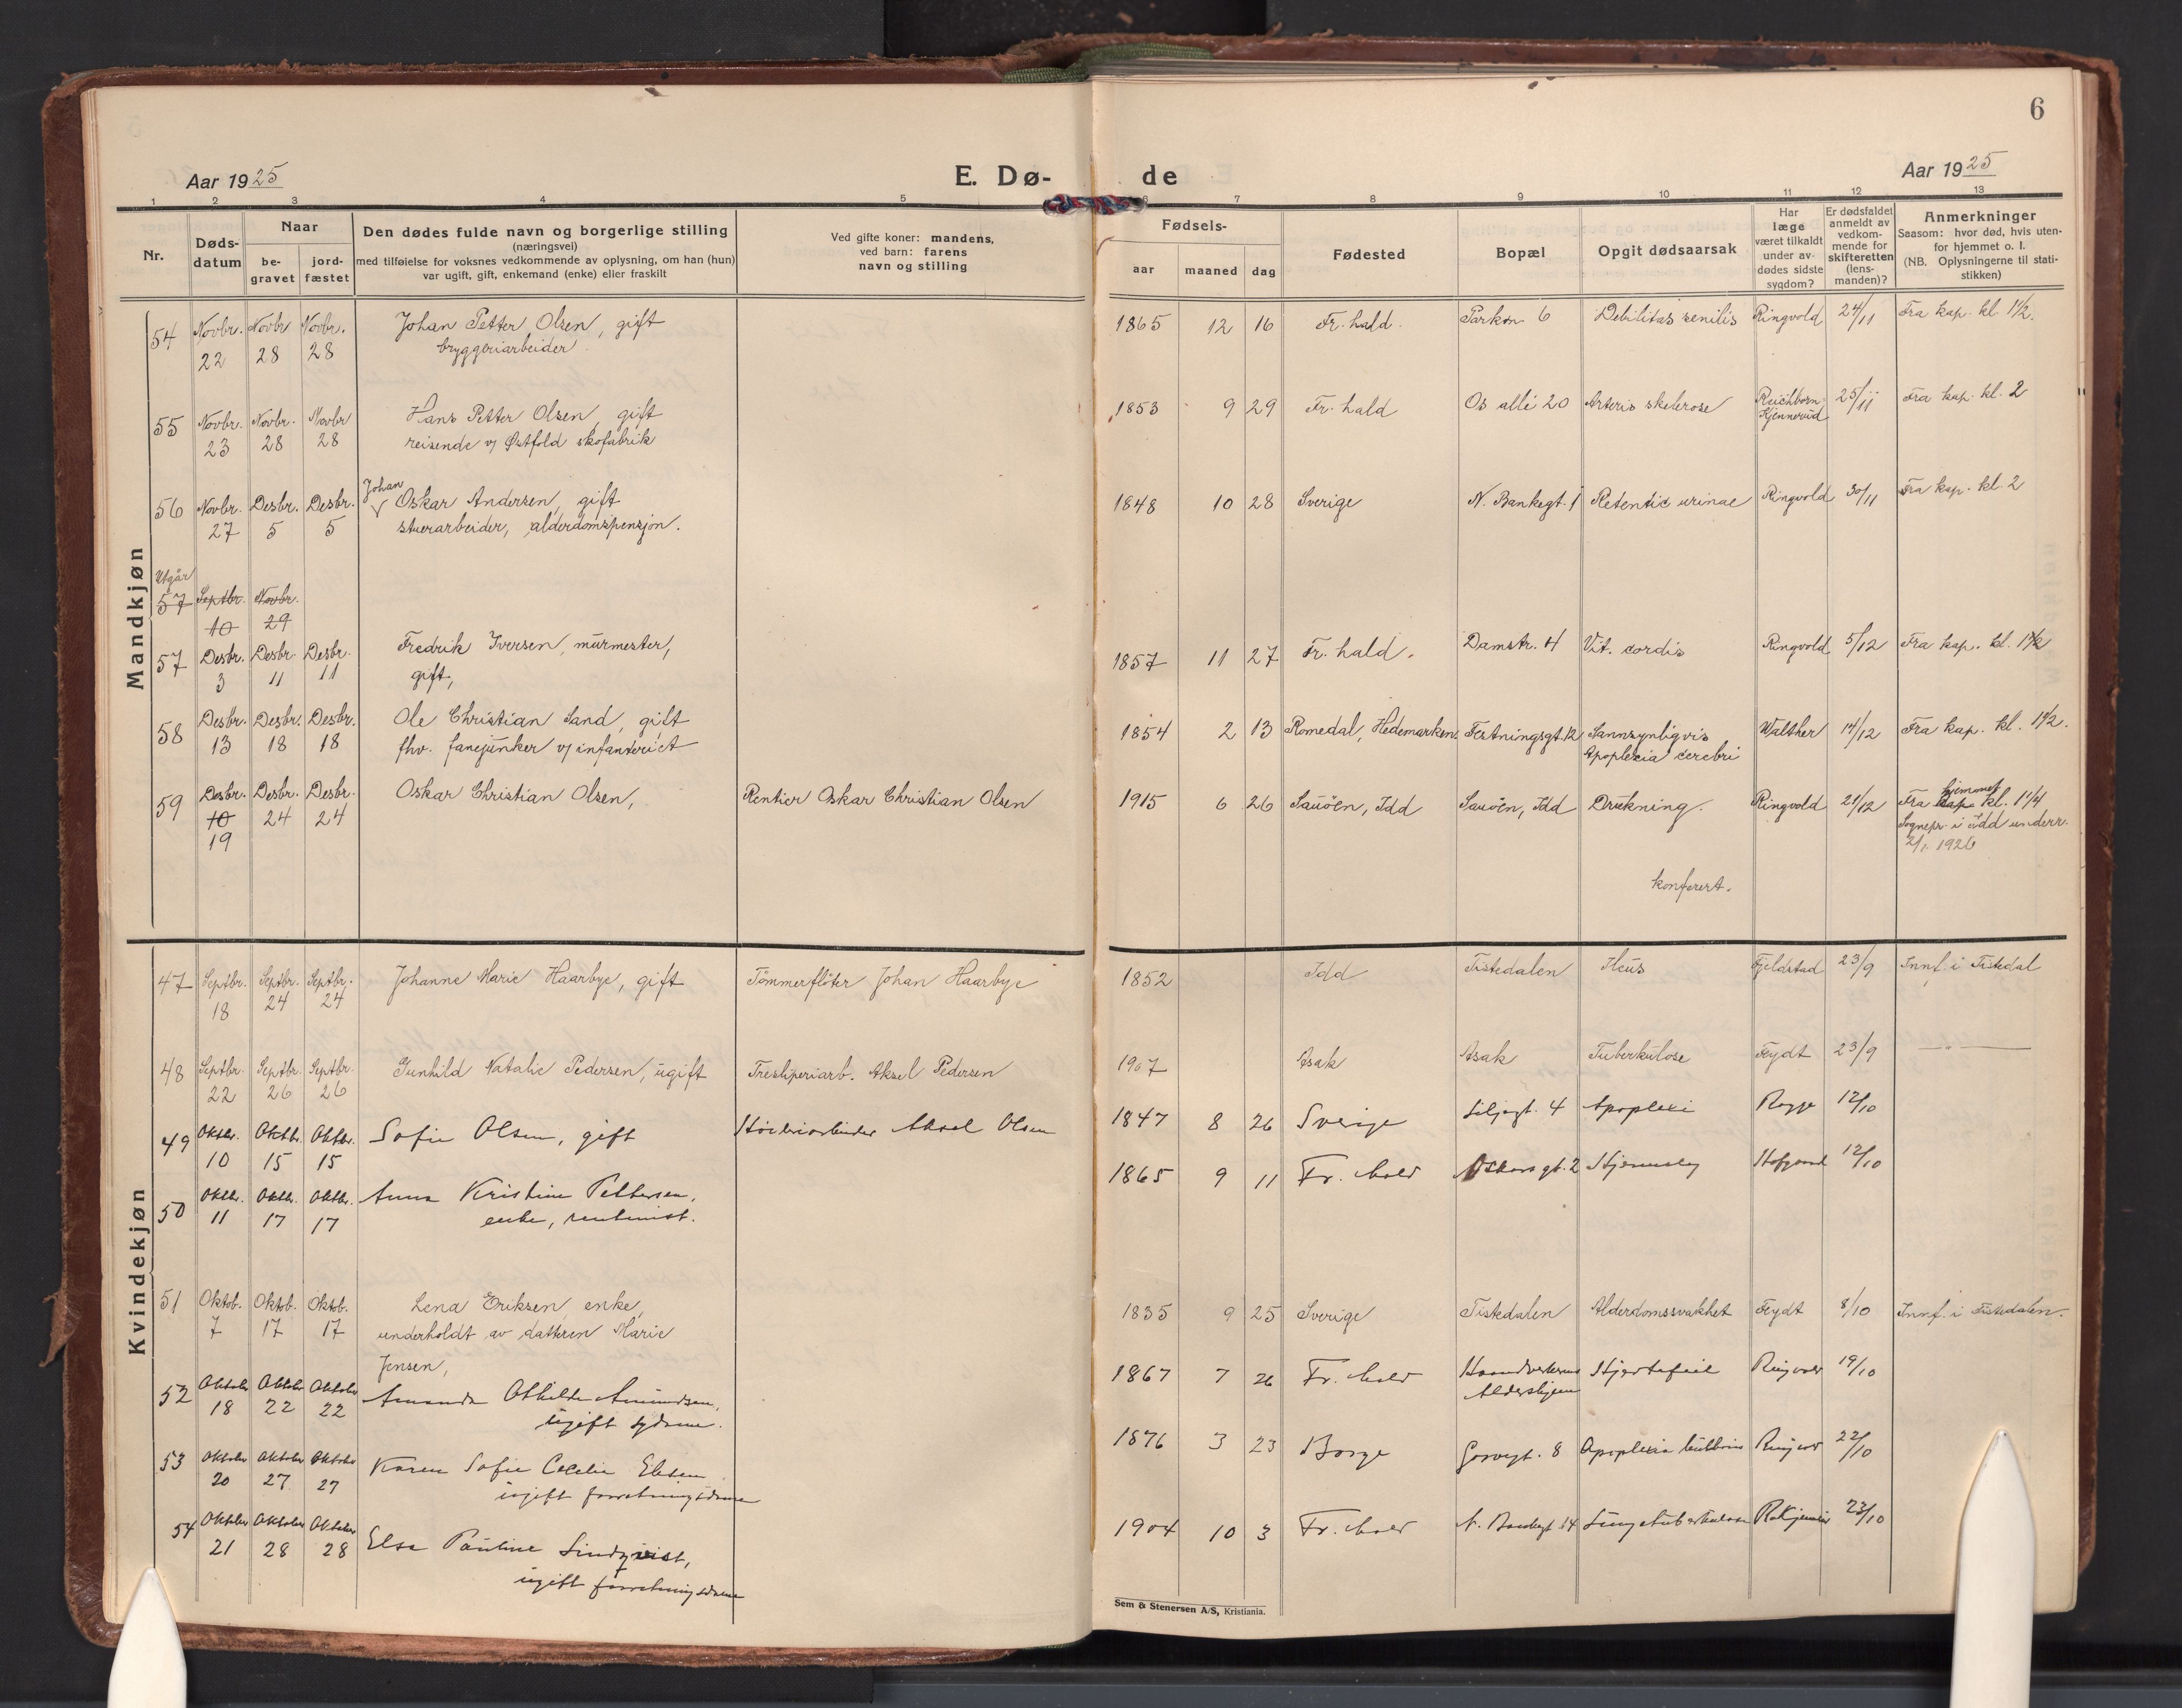 6
Aar 1925
E. Dø-
de
Aar 1925
1 2 3 4 5 6 7 8 9 10 11 12 13
Nr.
Døds-
datum
Naar
be-
gravet
jord-
fæstet
Den dødes fulde navn og borgerlige stilling
(næringsvei)
med tilføielse for voksnes vedkommende av oplysning, om han (hun)
var ugift, gift, enkemand (enke) eller fraskilt
Ved gifte koner: mandens,
ved barn: farens
navn og stilling
Fødsels-
aar maaned dag
Fødested
Bopæl
Opgit dødsaarsak
Har
læge
været tilkaldt
under av-
dødes sidste
sygdom?
Er dødsfaldet
anmeldt av
vedkom-
mende for
skifteretten
(lens-
manden)?
Anmerkninger
Saasom: hvor død, hvis uten-
for hjemmet o. l.
(NB. Oplysningerne til stati-
stikken)
Mandkjøn
54 Novbr. Novbr Novbr. Johan Petter Olsen, gift 1865 12 16 Fr.hald. Parkvn 6 Debilitas senilis Ringvold 24/11 Fra kap. kl. 1½.
22 28 28 bryggeriarbeider.
55 Novbr. Novbr. Novbr Hans Petter Olsen, gift 1853 9 29 Fr. hald Os allé 20 Arterio sklerose Reichborn- 25/11 Fra kap. kl. 2
Kjennerud
23 28 28 reisende v/ Østfold skofabrik
Johan
56 Novbr. Desbr. Desbr. Oskar Andersen, gift 1848 10 28 Sverige N. Bankegt. 1 Retentio urinae Ringvold 30/11 Fra kap. kl. 2
27 5 5 stuerarbeider, alderdomspensjon.
Utgår
57 Septbr. Novbr.
10 29
57 Desbr. Desbr. Desbr. Fredrik Iversen, murmester, 1857 11 27 Fr. hald. Damstr. 4 Vit. cordis Ringvold 5/12 Fra kap. kl. 1½
3 11 11 gift,
58 Desbr. Desbr. Desbr. Ole Christian Sand, gift 1854 2 13 Romedal, Hedemarken. Festningsgt. 12 Sannsynligvis Walther 14/12 Fra kap. kl. 1½.
13 18 18 fhv. fanejunker v/ infanteriet Apoplexia cerebri
59 Desbr. Desbr. Desbr. Oskar Christian Olsen, Rentier Oskar Christian Olsen 1915 6 26 Sauöen, Idd Sauöen, Idd Drukning. Ringvold 21/12 Fra kap. hjemmet kl. 1¼
10 24 24
19
Sognepr. i Idd underr.
2/1. 1926
konferert.
Kvindekjøn
47 Septbr. Septbr. Septbr. Johanne Marie Haarbye, gift Tömmerflöter Johan Haarbye 1852 Idd Tistedalen Ileus Fjeldstad 23/9 Innf. i Tistedal
18 24 24
48 Septbr. Septbr. Septbr. Gunhild Natalie Pedersen, ugift Tresliperiarb. Aksel Pedersen 1907 Asak Asak Tuberkulose Feydt 23/9 — " —
22 26 26
49 Oktbr. Oktbr. Oktbr. Sofie Olsen, gift Aksel Olsen 1847 8 26 Sverige Liljegt. 4 Apoplexi Rogge 12/10
10 15 15
50 Oktbr. Oktbr. Oktbr. Anna Kristine Pettersen, 1865 9 11 Fr. hald Oskars gt. 2 12/10
11 17 17 enke,
51 Oktob. Oktob. Oktob. Lena Eriksen, enke, 1835 9 25 Sverige Tistedalen Alderdomssvakhet Feydt 8/10 Innf. i Tistedalen.
7 17 17 underholdt av datteren Marie
Jensen,
52 Oktober Oktober Oktober Amanda Othilde Amundsen, 1867 7 26 Fr. hald Haandverkernes Hjertefeil Ringvold 19/10
Aldershjem
18 22 22 ugift sydame.
53 Oktober Oktober Oktober Karen Sofie Cecelie Ebsen 1876 3 23 Borge 8 Apoplexia bulbaris Ringvold 22/10
20 27 27 ugift forretningsdame
54 Oktober Oktober Oktober Elsa Pauline Lindqvist, 1904 10 3 Fr. hald N. Bankegt. 14 Lungetuberkulose R.Kjennerud 23/10
21 28 28 ugift forretningsdame
Sem & Stenersen A/S, Kristiania.